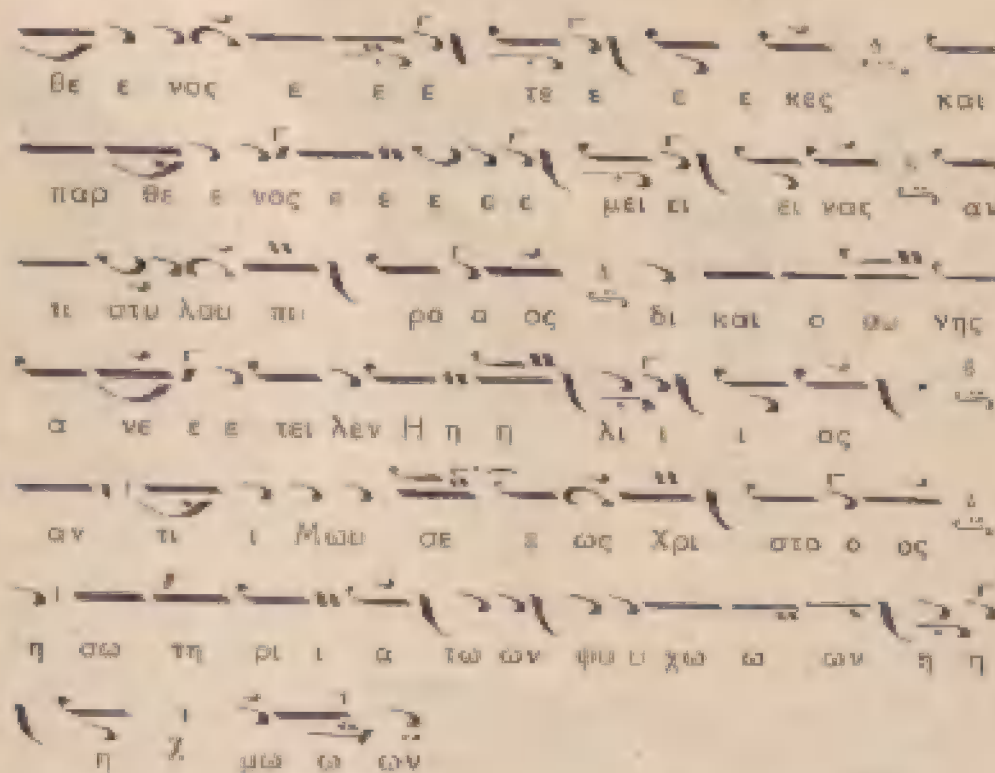 θε ε νος ε ε ε τε ε ε ε κες και
παρ θε ε νος ε ε ε ε ε μει ει ει νας αν
τι στυ λου πυ ρο ο ος δι και ο συ νης
α νε ε ε τει λεν Η η η λι ι ι ος
αν τι ι Μωυ σε ε ως Χρι στο ο ος
η σω τη ρι ι α τω ων ψυ υ χω ω ων η η
η μω ω ων